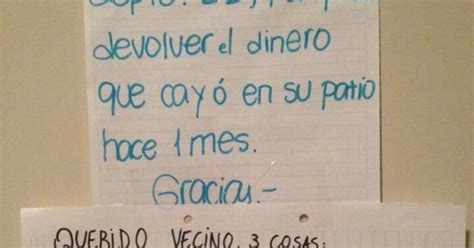 devolver el dinero
que cayó en su patio
hace 1 mes.
Gracias.-
QUERIDO VECINO, 3 COSAS: